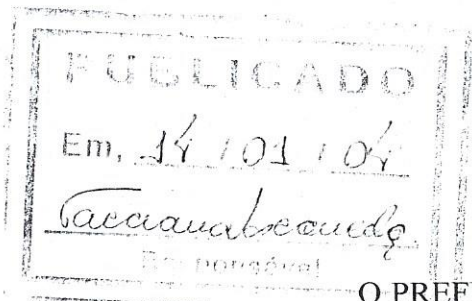 PUBLICADO
Em, 14 / 01 / 04
Responsável
O PREF